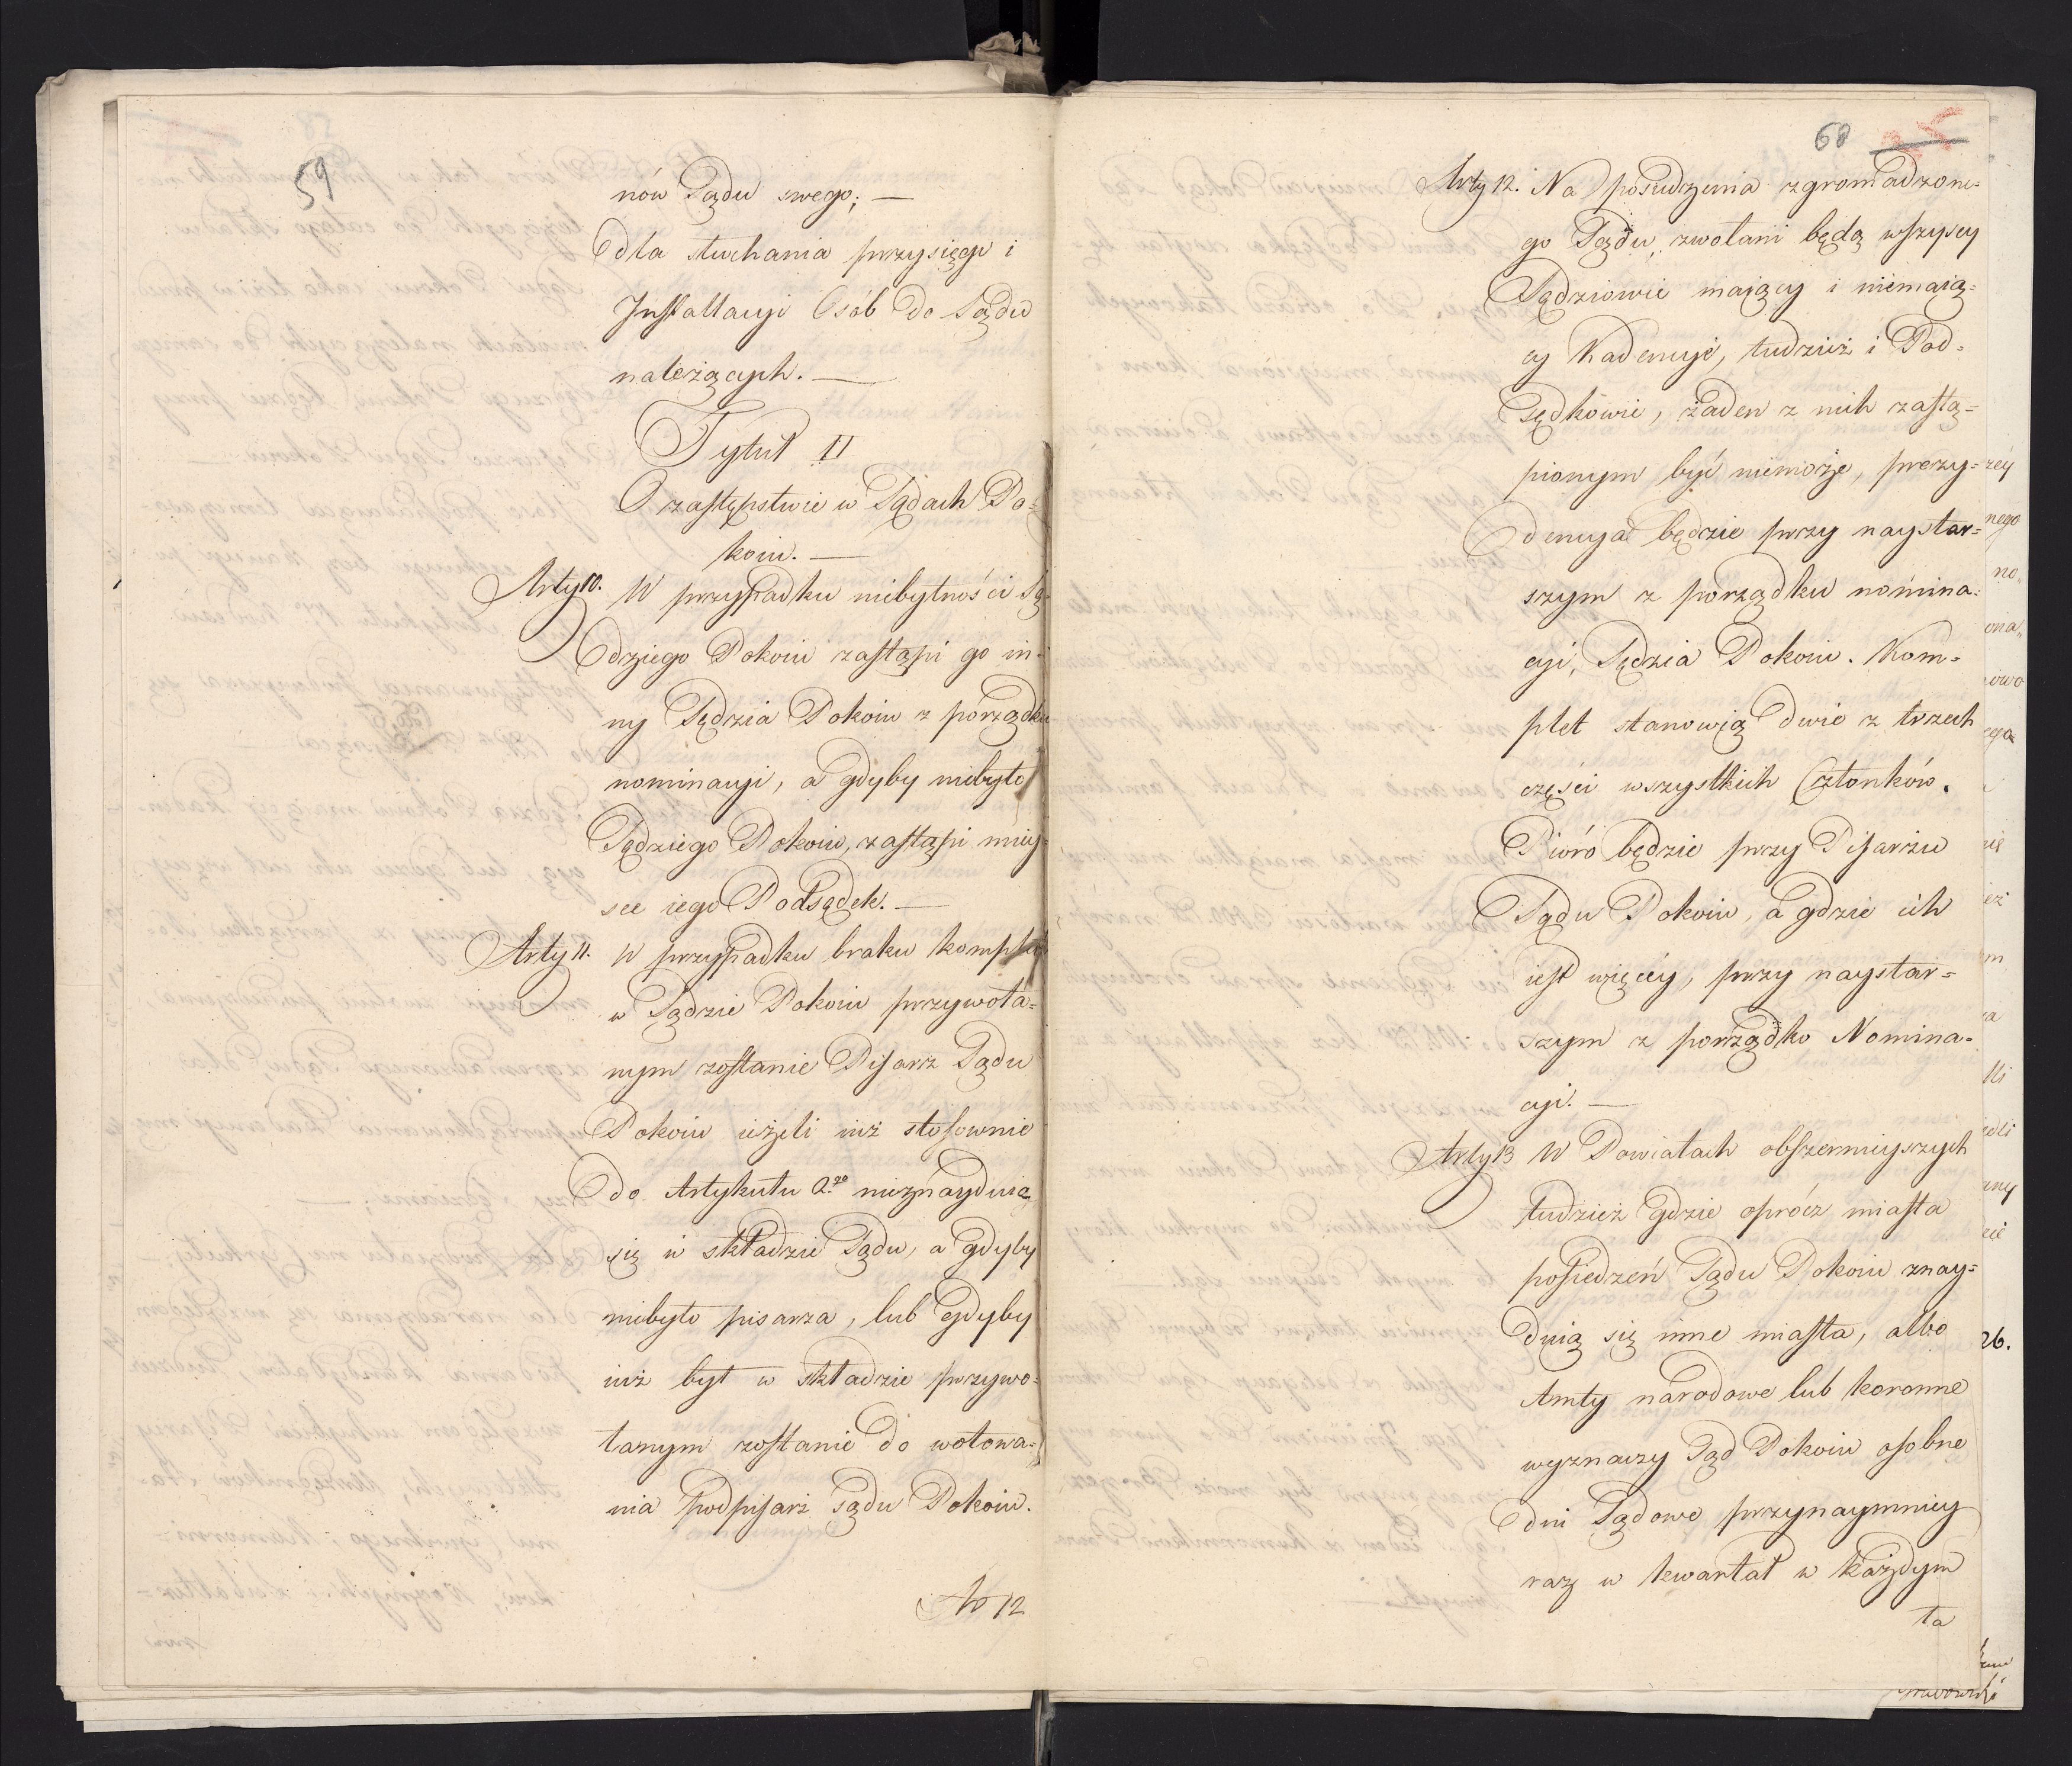 59
nów Sądu swego; —
dla słuchania przysięgi i
Installacyi Osób do Sądu
należących. —
Tytuł II
O zastępstwie w Sądach Po=
koiu. —
Arty 10. W przypadku niebytności Sę=
dziego Pokoiu zastąpi go in=
ny Sędzia Pokoiu z porządku
nominacyi, a gdyby niebyło
Sędziego Pokoiu, zastąpi miey=
sce iego Podsędek. —
Arty 11. W przypadku braku komple
w Sądzie Pokoiu przywoła=
nym zostanie Pisarz Sądu
Pokoiu ieżeli iuż stosownie
do Artykułu 2.go nieznayduie
się w składzie Sądu, a gdyby
niebyło pisarza, lub gdyby
iuż był w składzie przywo=
łanym zostanie do wotowa=
nia podpisarz Sądu Pokoiu.
Ar 12
68
Arty 12. Na posiedzenia zgromadzone=
go Sądu, zwołani będą wszyscy
Sędziowie maiący i niemaią=
cy Kadencyi, tudzież i Pod=
sędkowie, żaden z nich zastą=
pionym być niemoże, prezy=
dencya będzie przy naystar=
szym z porządku nomina=
cyi, Sędzia Pokoiu. Kom=
plet stanowią dwie z trzech
części wszystkich Członków.
Pióro będzie przy Pisarzu
Sądu Pokoiu, a gdzie ich
iest więcéy, przy naystar=
szym z porządko Nomina=
cyi. —
Arty 13 W Powiatach obszernieyszych
tudzież gdzie oprócz miasta
posiedzeń Sądu Pokoiu znay=
duią się inne miasta, albo
Amty narodowe lub koronne
wyznaczy Sąd Pokoiu osobne
dni Sądowe przynaymniey
raz w kwartał w każdym
ta
26.